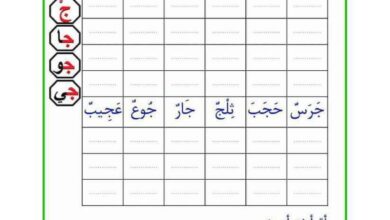 جَا
جُو
جِي
جَرَسٌ حَجَبَ ثِلْجٌ جَارٌ جُوعٌ عَجِيبٌ